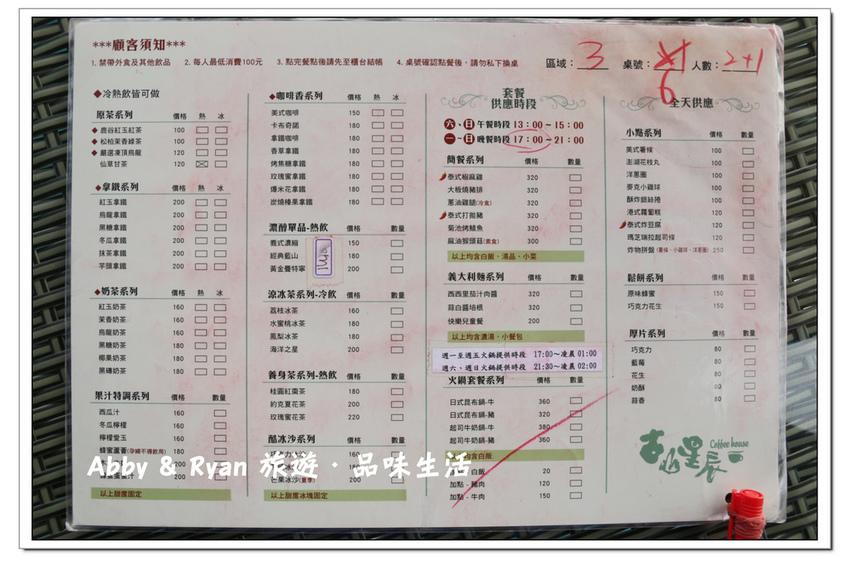 ***顧客須知***
1. 禁帶外食及其他飲品 2. 每人最低消費100元 3. 點完餐點後請先至櫃台結帳 4. 桌號確認點餐後，請勿私下換桌
區域：3 桌號：6 人數：2+1
◆冷熱飲皆可做
原茶系列 價格 熱 冰
◆鹿谷紅玉紅茶 100
◆松柏茉香綠茶 100
◆嚴選凍頂烏龍 120
仙草甘茶 120
◆拿鐵系列 價格 熱 冰
紅玉拿鐵 200
烏龍拿鐵 200
黑糖拿鐵 200
冬瓜拿鐵 200
抹茶拿鐵 200
芋頭拿鐵 200
◆奶茶系列 價格 熱 冰
紅玉奶茶 160
茉香奶茶 160
烏龍奶茶 160
黑糖奶茶 180
椰果奶茶 180
黑磚奶茶 180
果汁特調系列 價格 數量
西瓜汁 160
冬瓜檸檬 160
檸檬愛玉 160
蜂蜜蘆薈(孕婦不得飲用) 180
200
200
以上甜度固定
◆咖啡香系列 價格 熱 冰
美式咖啡 150
卡布奇諾 180
拿鐵咖啡 180
香草拿鐵 180
烤焦糖拿鐵 180
玫瑰蜜拿鐵 180
爆米花拿鐵 180
炭燒榛果拿鐵 180
濃醇單品-熱飲 數量
義式濃縮 150
經典藍山 180
黃金曼特寧 200
涼冰茶系列-冷飲 數量
荔枝冰茶 160
水蜜桃冰茶 180
鳳梨冰茶 180
海洋之星 200
養身茶系列-熱飲 數量
桂圓紅棗茶 180
約克夏花茶 200
玫瑰蜜花茶 220
酷冰沙系列 價格 數量
180
200
芒果冰沙(夏季) 200
以上甜度冰塊固定
套餐
供應時段
六、日 午餐時段 13：00~15：00
一~日 晚餐時段 17：00~21：00
簡餐系列 價格 數量
泰式椒麻雞 320
大板燒豬排 320
蔥油雞腿(冷食) 320
泰式打拋豬 320
菊池烤鯖魚 320
麻油猴頭菇(素食) 300
以上均含白飯、湯品、小菜
義大利麵系列 價格 數量
西西里茄汁肉醬 320
蒜白醬培根 320
快樂兒童餐 200
以上均含濃湯、小餐包
週一至週五火鍋提供時段 17:00~凌晨 01:00
週六、週日火鍋提供時段 21:30~凌晨 02:00
火鍋套餐系列 價格 數量
日式昆布鍋-牛 360
日式昆布鍋-豬 320
起司牛奶鍋-牛 380
起司牛奶鍋-豬 360
均含白飯
白飯 20
加點 - 豬肉 120
加點 - 牛肉 150
全天供應
小點系列 價格 數量
美式薯條 100
澎湖花枝丸 100
洋蔥圈 100
麥克小雞球 100
酥炸銀絲捲 100
港式蘿蔔糕 120
泰式炸豆腐 120
瑪芝瑞拉起司條 120
炸物拼盤 (薯條、小雞球、洋蔥圈) 250
鬆餅系列 價格 數量
原味蜂蜜 150
巧克力花生 150
厚片系列 價格 數量
巧克力 80
藍莓 80
花生 80
奶酥 80
蒜香 80
古山星辰
Coffee house
Abby & Ryan 旅遊‧品味生活